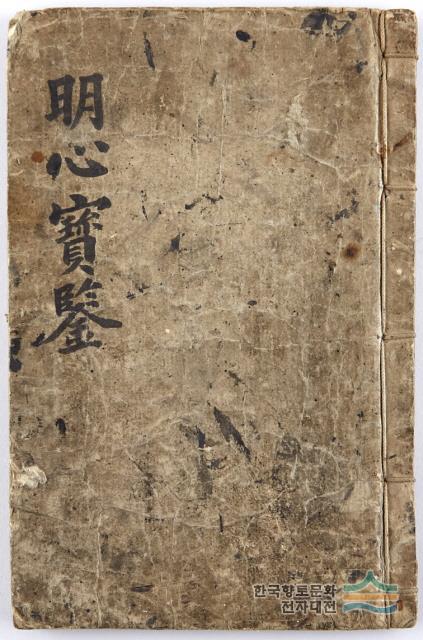 明心寶鑒
한국향토문화
전자대전